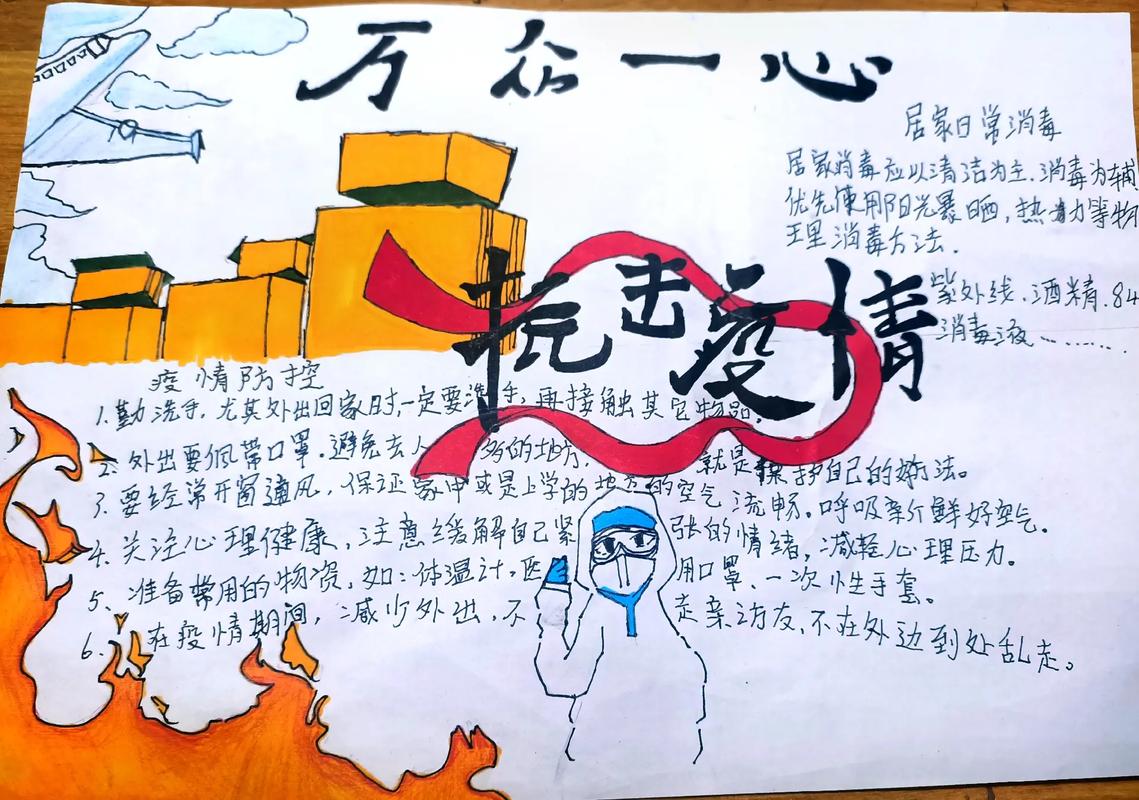 万众一心
居家日常消毒
居家消毒应以清洁为主.消毒为辅
优先使用阳光暴晒,热力等物
理消毒方法.
紫外线.酒精.84
消毒液……
抗击疫情
疫情防控
1.勤洗手,尤其外出回家时,一定要洗手,再接触其它物品
2.外出要佩带口罩.避免去人多的地方,就是保护自己的办法。
3.要经常开窗通风,保证家中或是上学的地方的空气流畅。呼吸新鲜好空气。
4.关注心理健康,注意缓解自己紧张的情绪,减轻心理压力。
5、准备常用的物资,如:体温计,医用口罩、一次性手套。
6.在疫情期间,减少外出,不走亲访友,不在外边到处乱走。